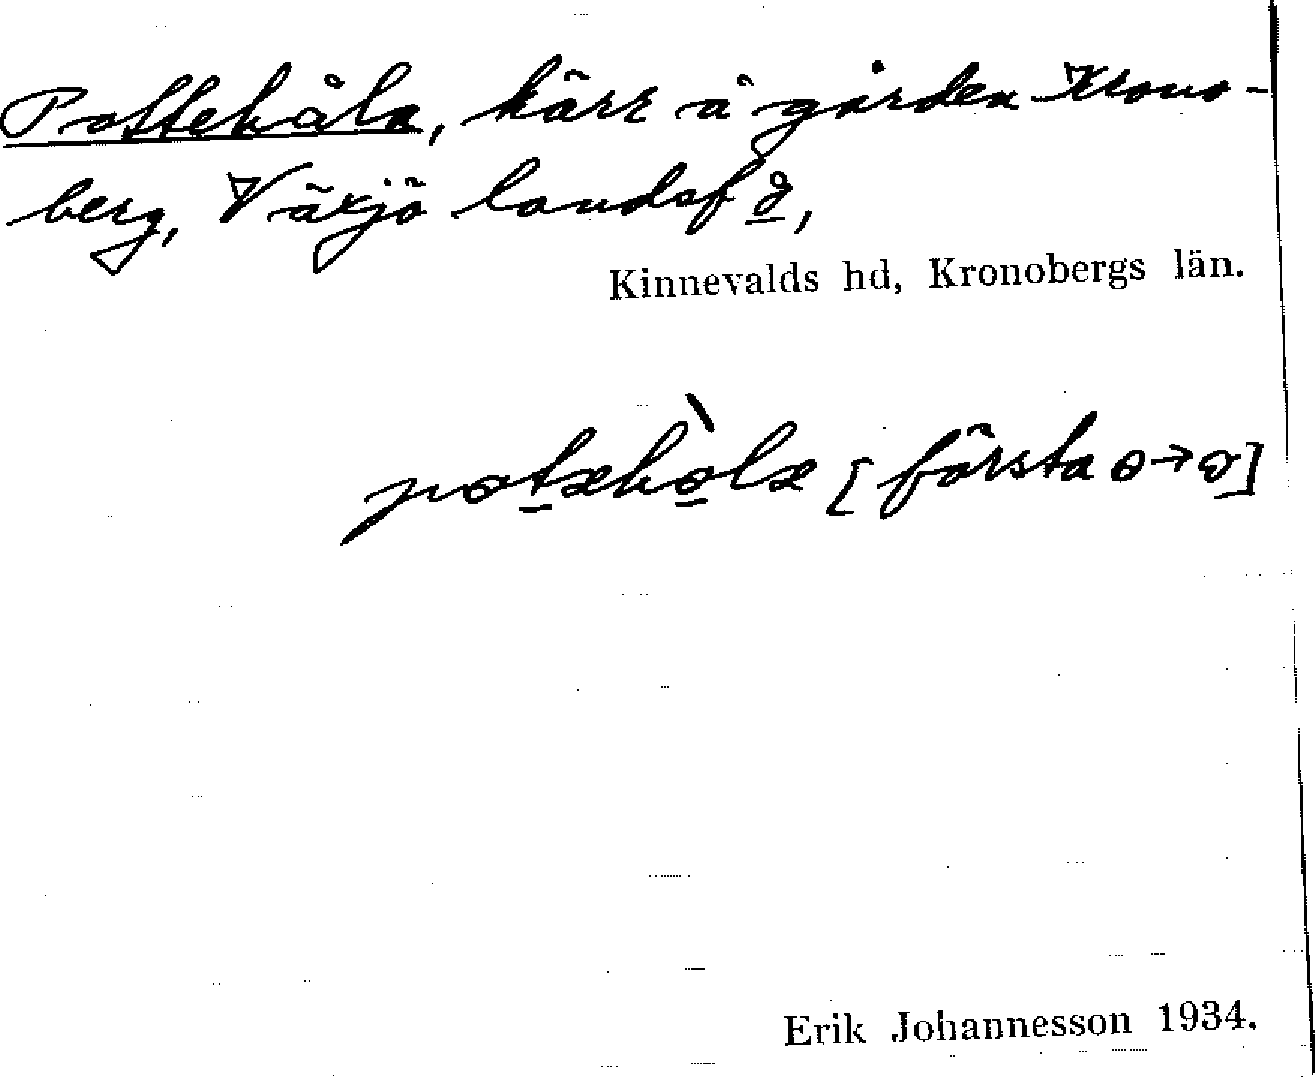 Pottehåla, kärr å gården Krono-
berg, Växjö landsf d,
Kinnevalds hd, Kronobergs län.
potæhòlæ [första o→ɷ]
Erik Johannesson 1934.